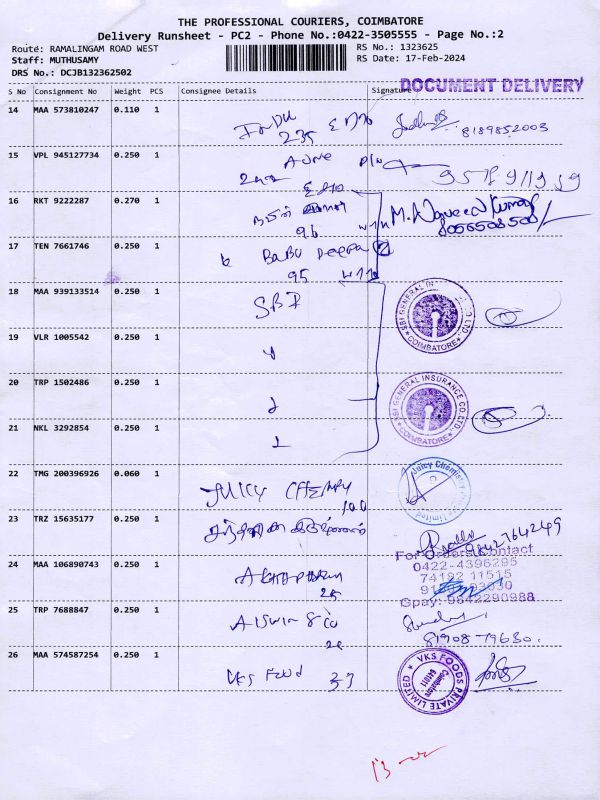 THE PROFESSIONAL COURIERS, COIMBATORE
Delivery Runsheet - PC2 - Phone No.:0422-3505555 - Page No.:2
Route: RAMALINGAM ROAD WEST
Staff: MUTHUSAMY
DRS No.: DCJB132362502
RS No.: 1323625
RS Date: 17-Feb-2024
DOCUMENT DELIVERY
S No Consignment No Weight PCS Consignee Details Signature
14 MAA 573810247 0.110 1
235
8189852003
15 VPL 945127734 0.250 1
16 RKT 9222287 0.270 1
96
M. Naveed Kumar
8056508508
17 TEN 7661746 0.250 1 BABU Deepa
95
18 MAA 939133514 0.250 1 SBI
SBI GENERAL IN CO. LTD. COIMBATORE
19 VLR 1005542 0.250 1
20 TRP 1502486 0.250 1
SBI GENERAL INSURANCE CO. LTD. COIMBATORE
21 NKL 3292854 0.250 1
22 TMG 200396926 0.060 1 JUICY CHEMRY
100
Juicy Chemistry Private Limited
23 TRZ 15635177 0.250 1
9842764249
For Orders Contact
0422-4396295
74192 11515
Gpay: 9842290988
24 MAA 106890743 0.250 1
25
25 TRP 7688847 0.250 1 AISWIN & CO
81908-79630.
26 MAA 574587254 0.250 1 VKS FOOD 37
VKS FOODS PRIVATE LIMITED
Coimbatore
641011